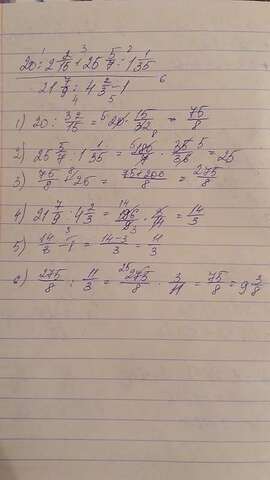 20 : 2 2/15 + 25 5/7 : 1 1/35
21 7/9 : 4 2/3 - 1
1) 20 : 32/15 = 20 · 15/32 = 75/8
2) 25 5/7 : 1 1/35 = 180/7 · 35/36 = 25
3) 75/8 + 25 = 75+200/8 = 275/8
4) 21 7/9 : 4 2/3 = 196/9 · 3/14 = 14/3
5) 14/3 - 1 = 14-3/3 = 11/3
6) 275/8 : 11/3 = 275/8 · 3/11 = 75/8 = 9 3/8